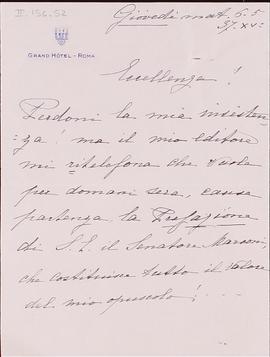 II. 156.52
Giovedì mat. 6.5
37. XV:
GRAND HÔTEL - ROMA
Eccellenza!
Perdoni la mia insisten=
=za! ma il mio editore
mi ritelefona che vuole
per domani sera, causa
partenza la Prefazione
di S.E. il Senatore Marconi,
che costituisce tutto il valore
del mio opuscolo! . . .